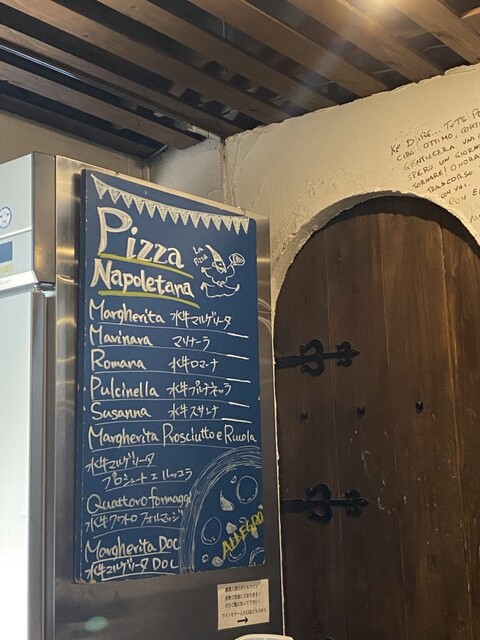 Pizza
Napoletana
La Pizza
Margherita 水牛マルゲリータ
Marinara マリナーラ
Romana 水牛ロマーナ
Pulcinella 水牛プルチネッラ
Susanna 水牛スザンナ
Margherita Prosciutto e Rucola
水牛マルゲリータ
プロシュート エ ルッコラ
Quattoro formaggi
水牛クワトロ フォルマッジ
Margherita DOC
水牛マルゲリータ DOC
ALLEGRO
KE DIRE... TUTTO
CIBO OTTIMO, CORT
GENTILEZZA.
SPERO UN GIORNO
TORNARE!
TRASCORSO
CON VOI.
CON
→